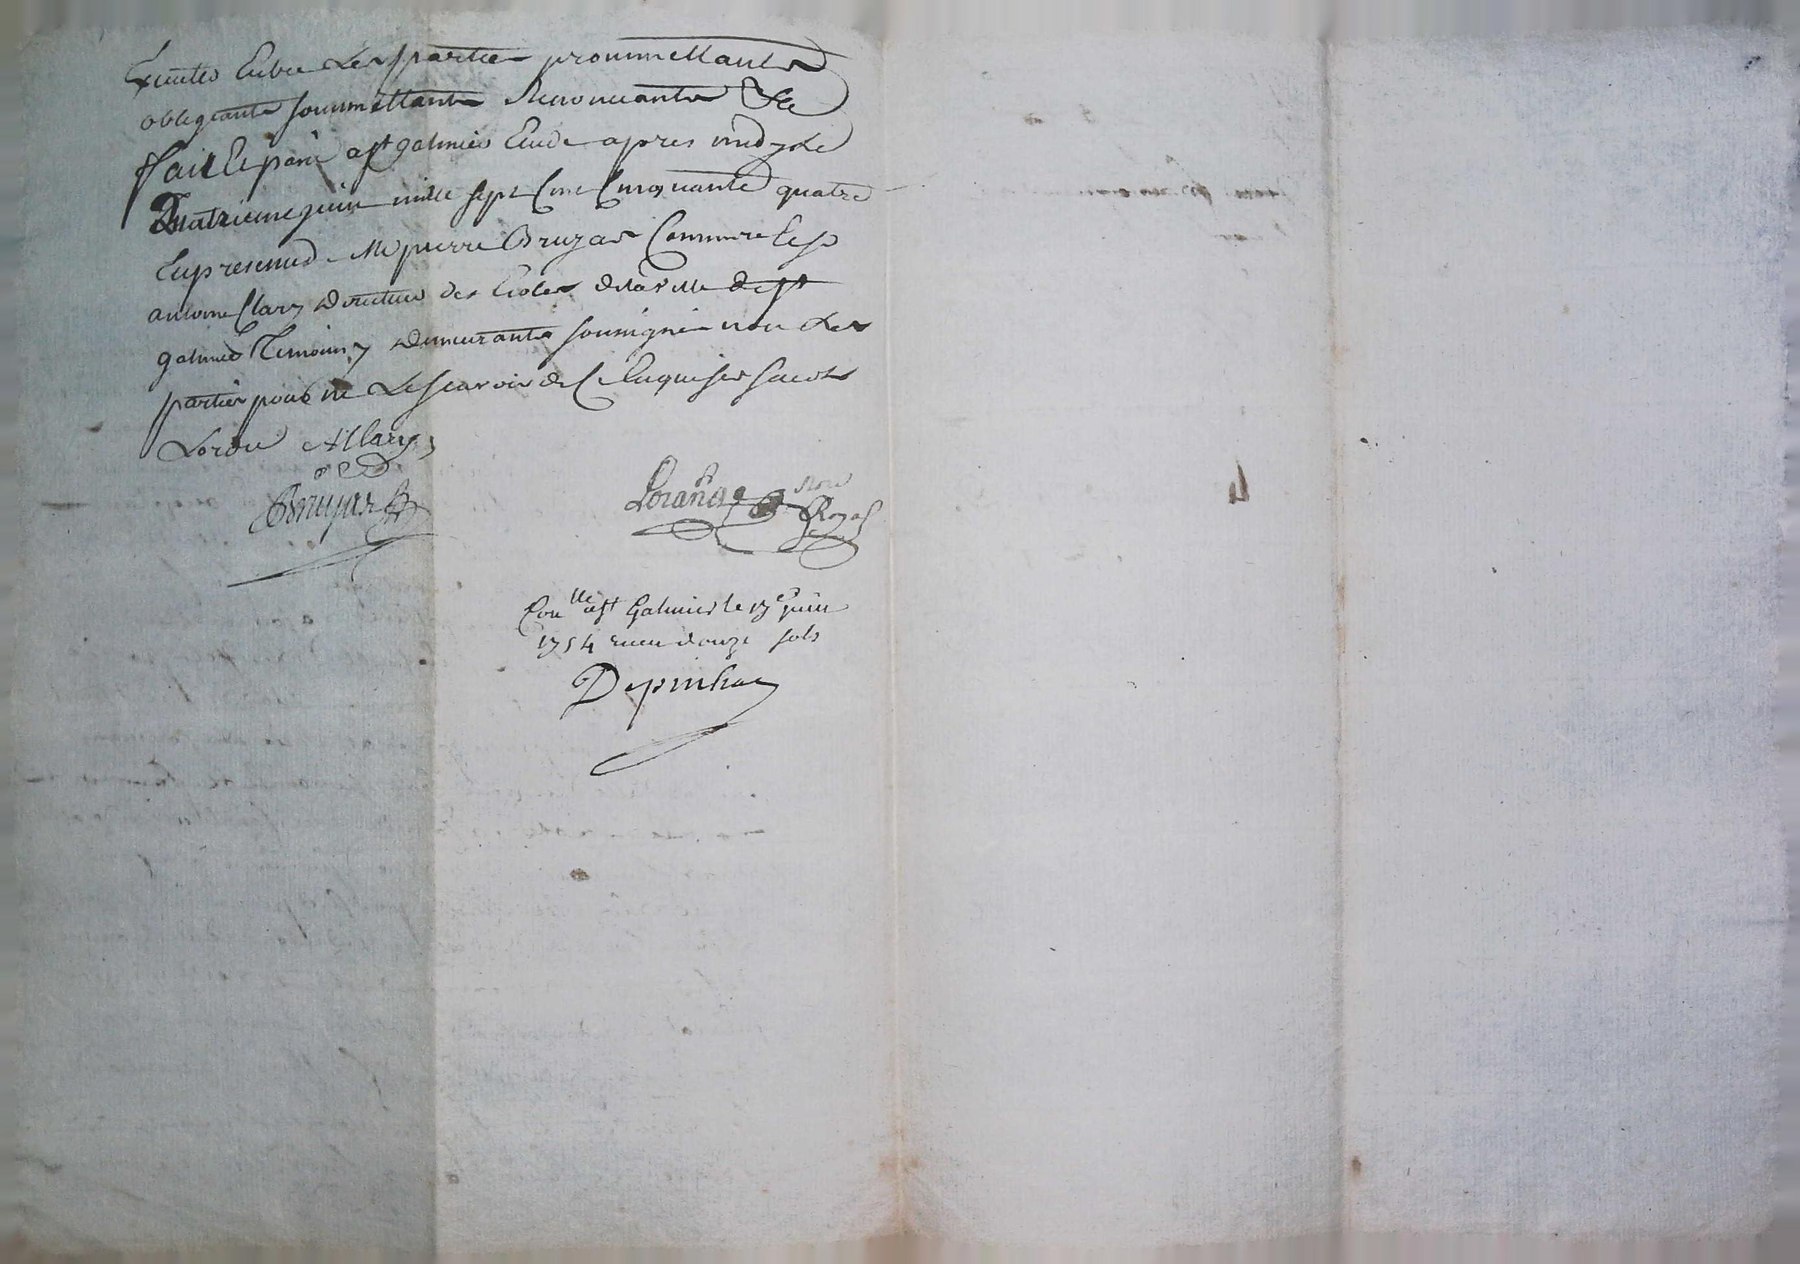 les partie prommettants
obligeants soummettants Renoncants &c
fait et passé a st galmier Etude apres midy le
quatrieme juin mille sept Cent Cinquante quatre
En presence de Me pierre Bruyas Commre Et sr
antoine Clary Directeur des Ecoles de la ville de st
galmier Temoins y demeurants soussignés non les
parties pour ne le scavoir de ce Enquises
Allary
Bruyas
Royal
a st Galmier le 17e juin
1754 receu douze sols
Depinhac